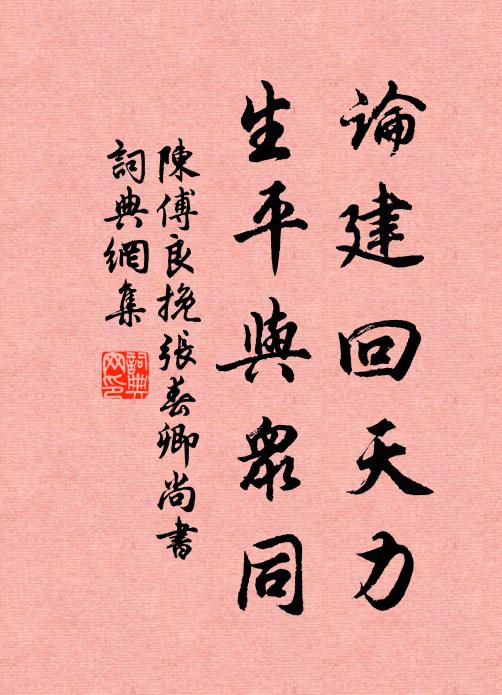 論建回天力
生平與眾同
陳傅良挽張春卿尚書
詞典網集
詞典網印